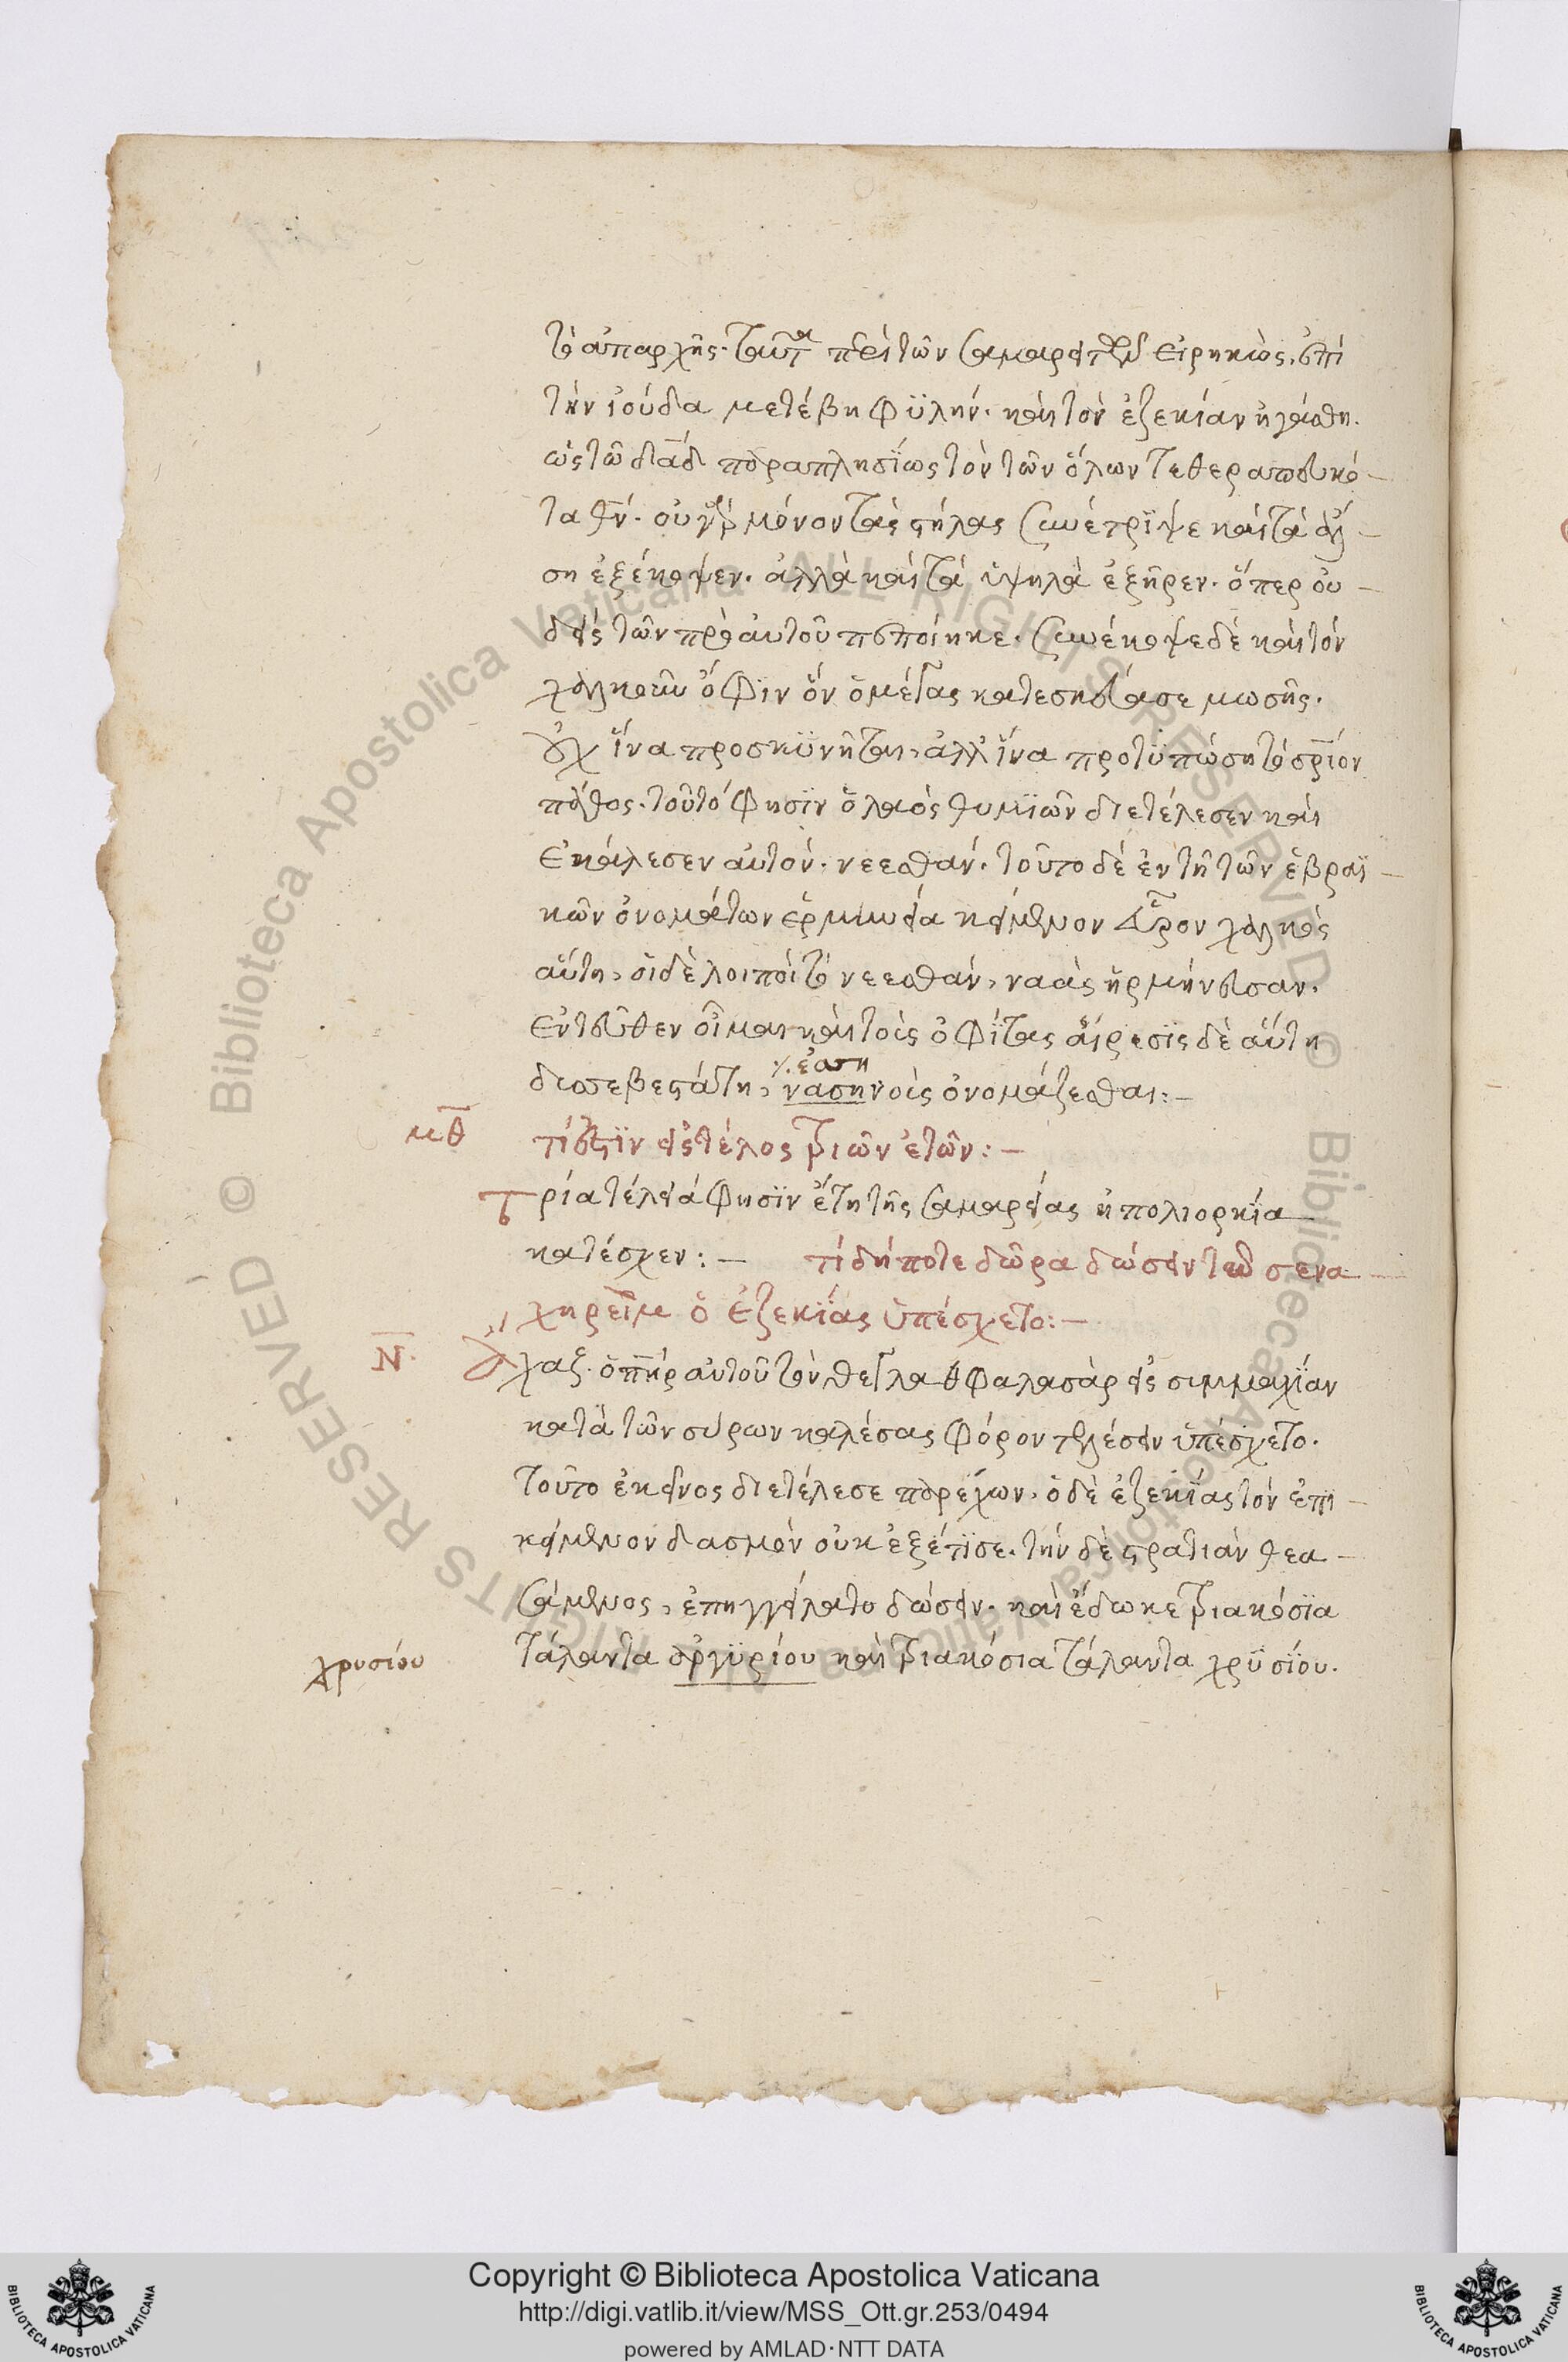 τὸ ἀπαρχῆς. ταῦτα περὶ τῶν σαμαρειτῶν εἰρηκὼς, ἐπὶ
τὴν ἰούδα μετέβη φϋλήν. καὶ τὸν ἐζεκίαν ἠγάσθη.
ὡς τῶ δᾱδ παραπλησΐως τὸν τῶν ὅλων τεθεραπευκό-
τα θ̅ν. οὐ γὰρ μόνον τὰς στήλας συνέτρϊψε καὶ τὰ ἄλ-
ση ἐξέκοψεν. ἀλλὰ καὶ τὰ ὑψηλὰ ἐξῆρεν. ὅπερ οὐ-
δεὶς τῶν πρὸ αὐτοῦ πεποίηκε. συνέκοψε δὲ καὶ τὸν
χαλκοῦν ὄφϊν ὃν ὁ μέγας κατεσκεύασε μωσῆς.
οὐχ ἵνα προσκϋνῆται, ἀλλ' ἵνα προτϋπώση τὸ σρ̅ιον
πάθος. τοῦτό φησϊν ὁ λαὸς θυμϊῶν διετέλεσεν καὶ
ἐκάλεσεν αὐτὸν. νεεσθάν. τοῦτο δὲ ἐν τῆ τῶν ἑβραϊ-
κῶν ὀνομάτων ἑρμηνεία κείμενον εὗρον χαλκὸς
αὕτη, οἱ δὲ λοιποὶ τὸ νεεσθάν, ναὰς ἡρμήνευσαν.
ἐντεῦθεν οἶμαι καὶ τοὺς ὀφΐτας αἵρεσϊς δὲ αὕτη
δυσσεβεστάτη, νασηνοὺς ὀνομάζεσθαι:-
·/. ἐαση
μθ̅ τί ἐστϊν εἰς τέλος τριῶν ἐτῶν:-
Τρία τέλειά φησϊν ἔτη τῆς σαμαρείας ἡ πολιορκΐα
κατέσχεν:- τί δήποτε δῶρα δώσειν τῶ σενα-
χηρεὶμ ὁ ἐζεκΐας ὑπέσχετο:-
Ν̅. Ἄχαζ. ὁ π̅ηρ αὐτοῦ τὸν θεγλαθφαλασὰρ εἰς συμμαχΐαν
κατὰ τῶν σύρων καλέσας φόρον τελέσειν ὑπέσχετο.
τοῦτο ἐκεῖνος διετέλεσε παρέχων. ὁ δὲ ἐζεκΐας τὸν ἐπι-
κείμενον δασμὸν οὐκ ἐξέτϊσε. τὴν δὲ στρατιὰν θεα-
σάμενος, ἐπηγγείλατο δώσειν. καὶ ἔδωκε τριακόσϊα
τάλαντα ἀργϋρίου καὶ τριακόσια τάλαντα χρϋσΐου.
χρυσίου
Copyright © Biblioteca Apostolica Vaticana
http://digi.vatlib.it/view/MSS_Ott.gr.253/0494
powered by AMLAD·NTT DATA